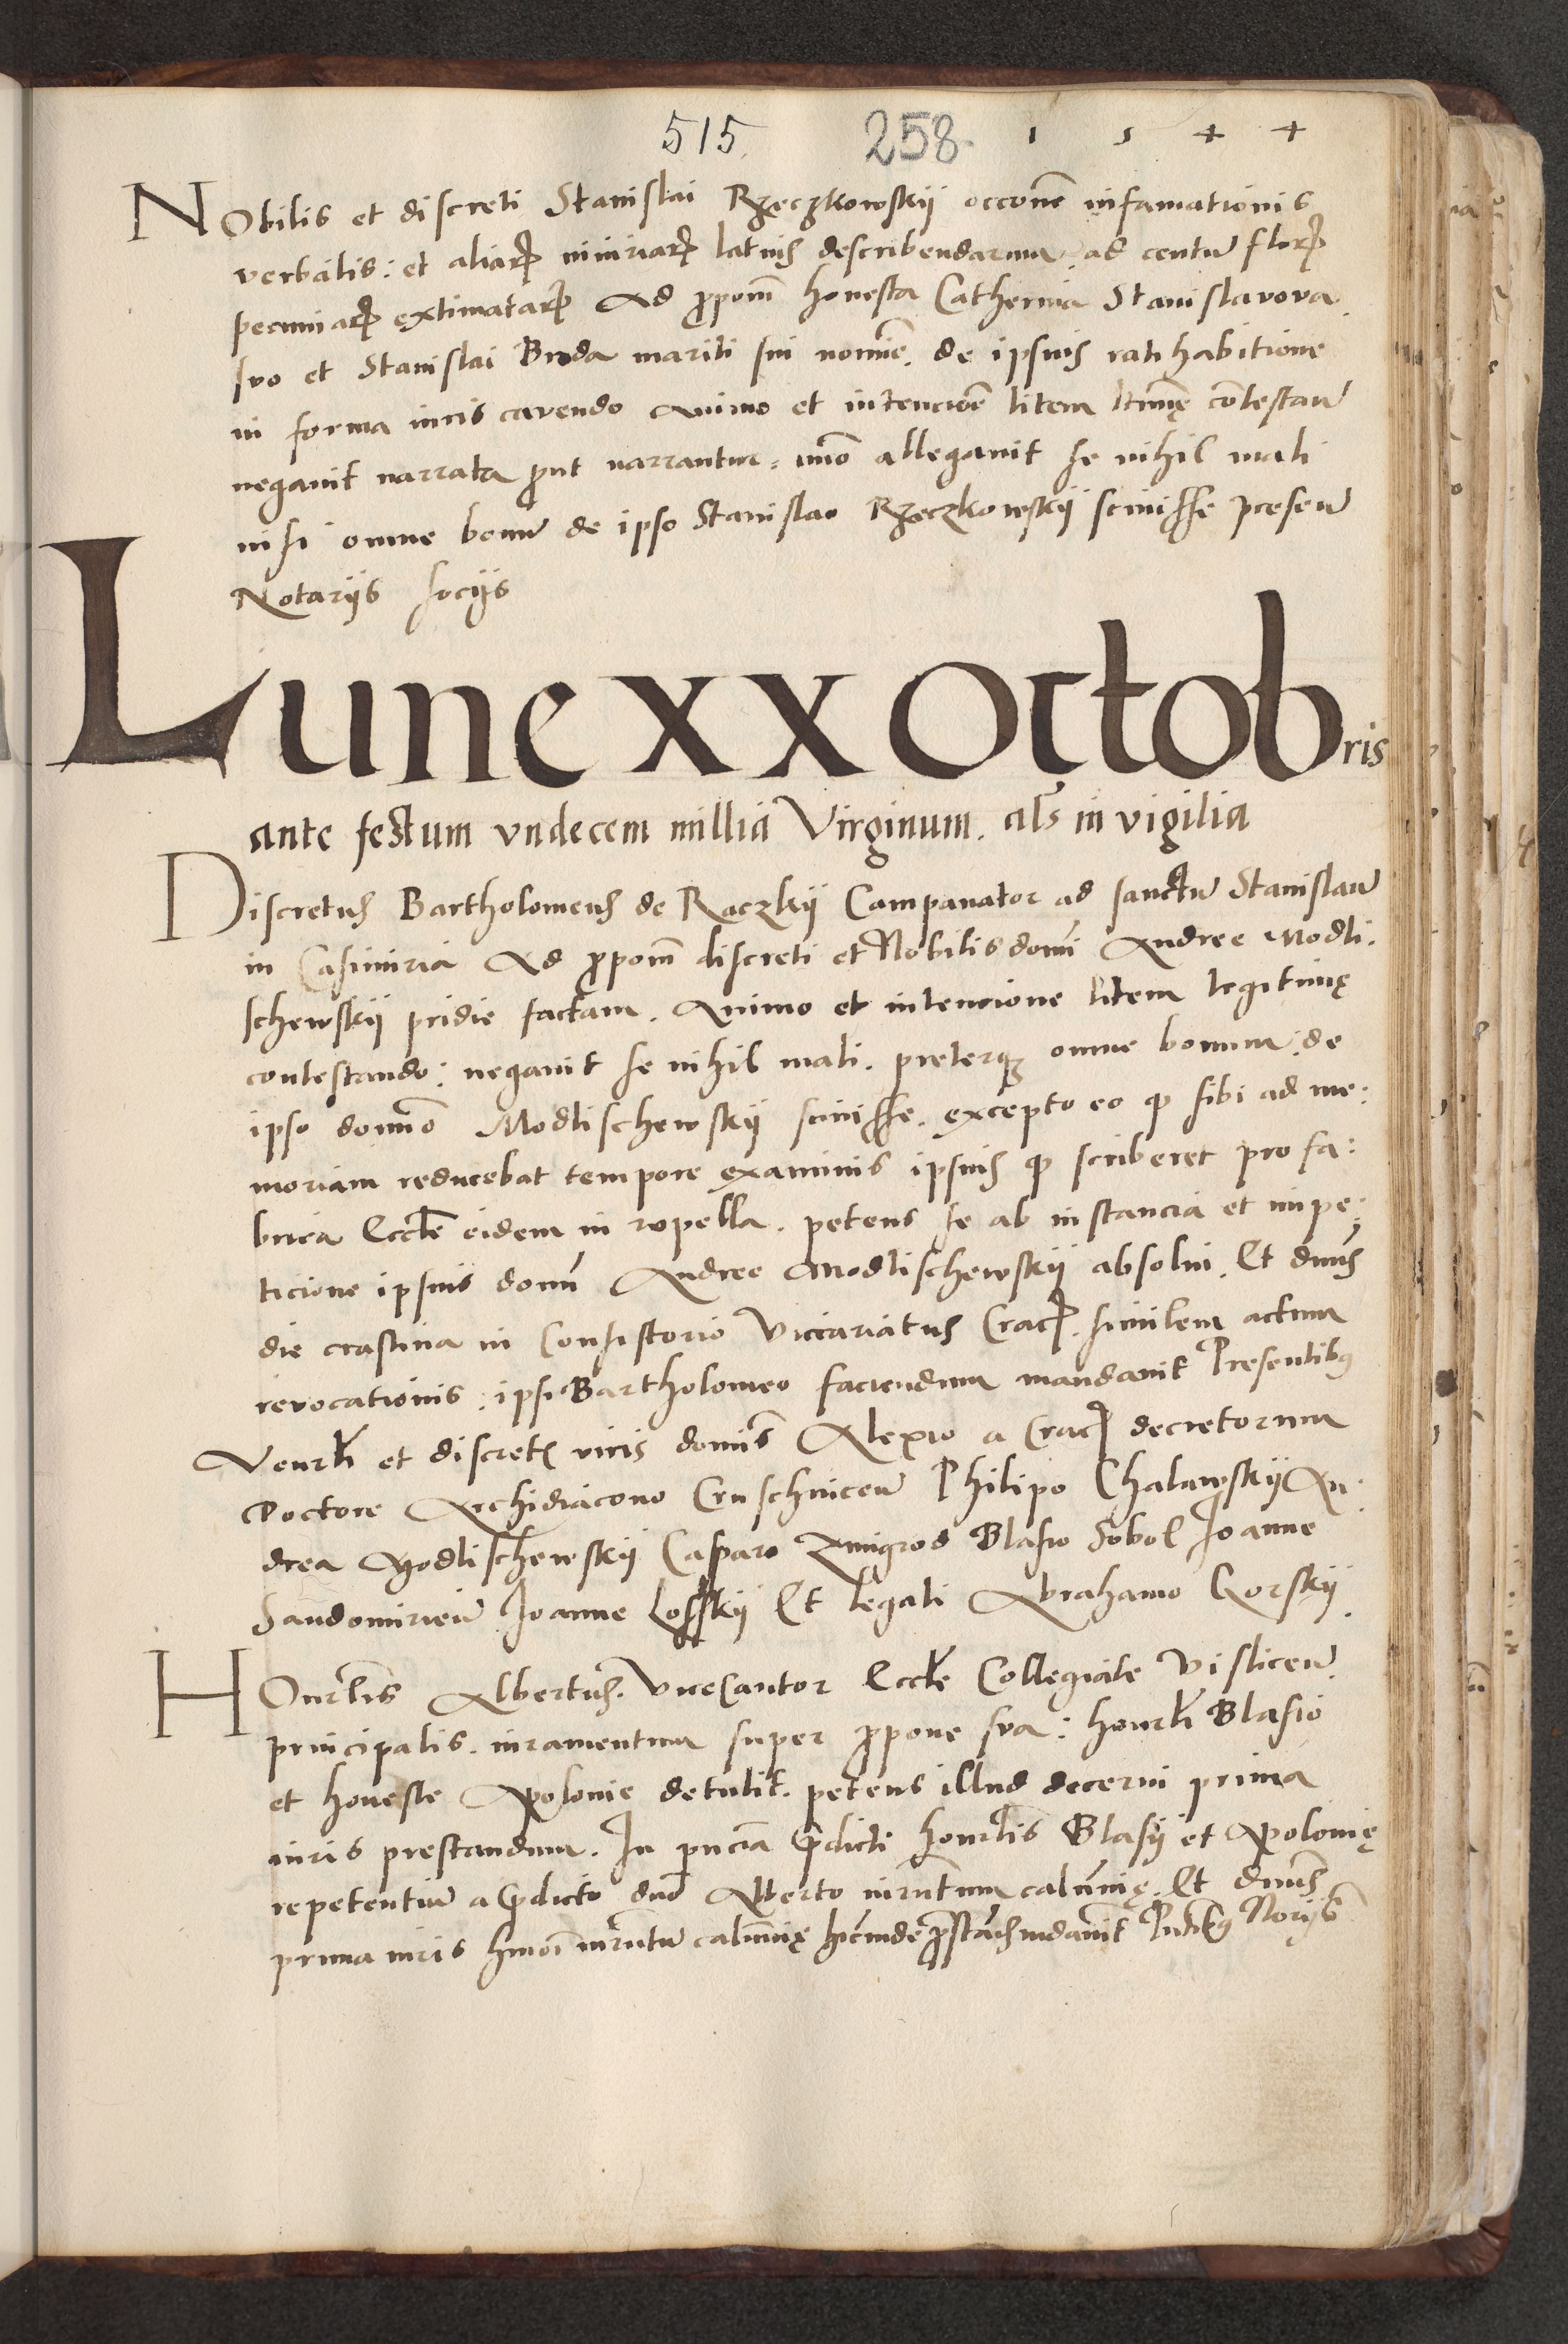 515 258. 1 5 4 4
NObilis et discreti Stanislai Rzeczkowskÿ occōne infamationis
verbalis: et aliarꝝ iniuriarꝝ latius describendarum. ad centū florꝝ
pecuniarꝝ extimatarꝝ Ad ꝓpoñ honesta Catherina Stanislavova.
suo et Stanislai Buda mariti sui noīne. de ipsius ratihabitione
in forma iuris cavendo animo et intencioē litem ltimę cōtestań
negavit narrata ꝓut narrantur. im̄o allegavit se nihil mali
nisi omne bonū de ipso Stanislao Rzeczkowskÿ scivisse p̄nteseñ
Notarÿs socÿs
Lune xx Octobris
ante festum vndecem millia Virginum. al̄s in vigilia
Discretus Bartholomeus de Raczkÿ Campanator ad sanctū Stanislaū
in Casimiria Ad ꝓpoñ discreti et Nobilis domī Andree Modli.
schewskÿ pridie factam. Animo et intencione litem legitimę
contestando: negavit se nihil mali. preterqȝ omne bonum. de
ipso domīo Modlischewskÿ scivisse. excepto eo ꝙ sibi ad me:
moriam reducebat tempore examinis ipsius ꝙ scriberet pro fa:
brica Eccłie eidem in ropella. petens se ab instancia et impe:
ticione ipsius domī Andree Modlischewskÿ absolvi. Et dn̄us
die crastina in Consistorio Vicariatus Cracꝭ. similem actum
revocationis: ipsi Bartholomeo faciendum mandavit Presentibꝰ
Venrłi et discretꝭ viris domīs Alexio a Cracꝭ decretorum
Doctore Archidiacono Cruschviceñ Philipo Chalawskÿ An:
drea Modlischewskÿ Casparo Zmigrod Blasio Sobol Joanne
Sandomirieñ Joanne Losskÿ Et legali Abrahamo Gorskÿ.
HOnrłis Albertus. ViceCantor Eccłie Collegiate Visliceñ.
principalis. iuramentum super ꝓpone sva: honrłi Blasio
et honeste Apolonie detulit. petens illud decerni prima
iuris prestandum. In pn̄cia p̄dicti honrłis Blasÿ et Apolonię
repetentiū a p̄dicto dn̄o Alberto iurn̄tum calūnię. Et dn̄us
prima iuris hm̄oi iurn̄tū calūnię hīcinde p̄stań mdavit Pn̄tibꝰ Norÿs